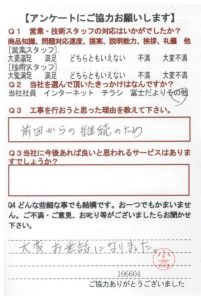 【アンケートにご協力お願いします】
Q1 営業・技術スタッフの対応はいかがでしたか?
商品知識、問題対応速度、提案、説明能力、挨拶、礼儀 他
[営業スタッフ]
大変満足 満足 どちらともいえない 不満 大変不満
[技術スタッフ]
大変満足 満足 どちらともいえない 不満 大変不満
Q2 当社を選んで頂いたきっかけはなんですか?
当社社員 インターネット チラシ 富士だより その他
Q3 工事を行おうと思った理由を教えて下さい。
前回からの継続のため
Q3 当社に今後あれば良いと思われるサービスはありますでしょうか?
Q4 どんな些細な事でも結構です。お一つでもかまいません。ご不満・ご意見、お叱り等がございましたらお聞かせ下さい。
大変お世話になりました。
106604
ご協力ありがとうございました